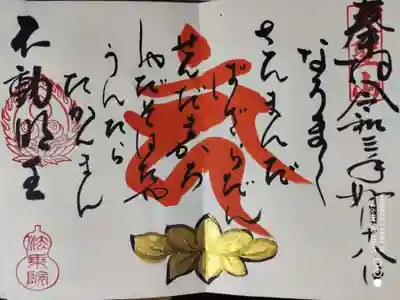 奉拝 令和三年如月
なうまく
さんまんだ
ばざらだん
せんだまかろ
しやだそはたや
うんたら
たかんまん
不動明王
法乗院